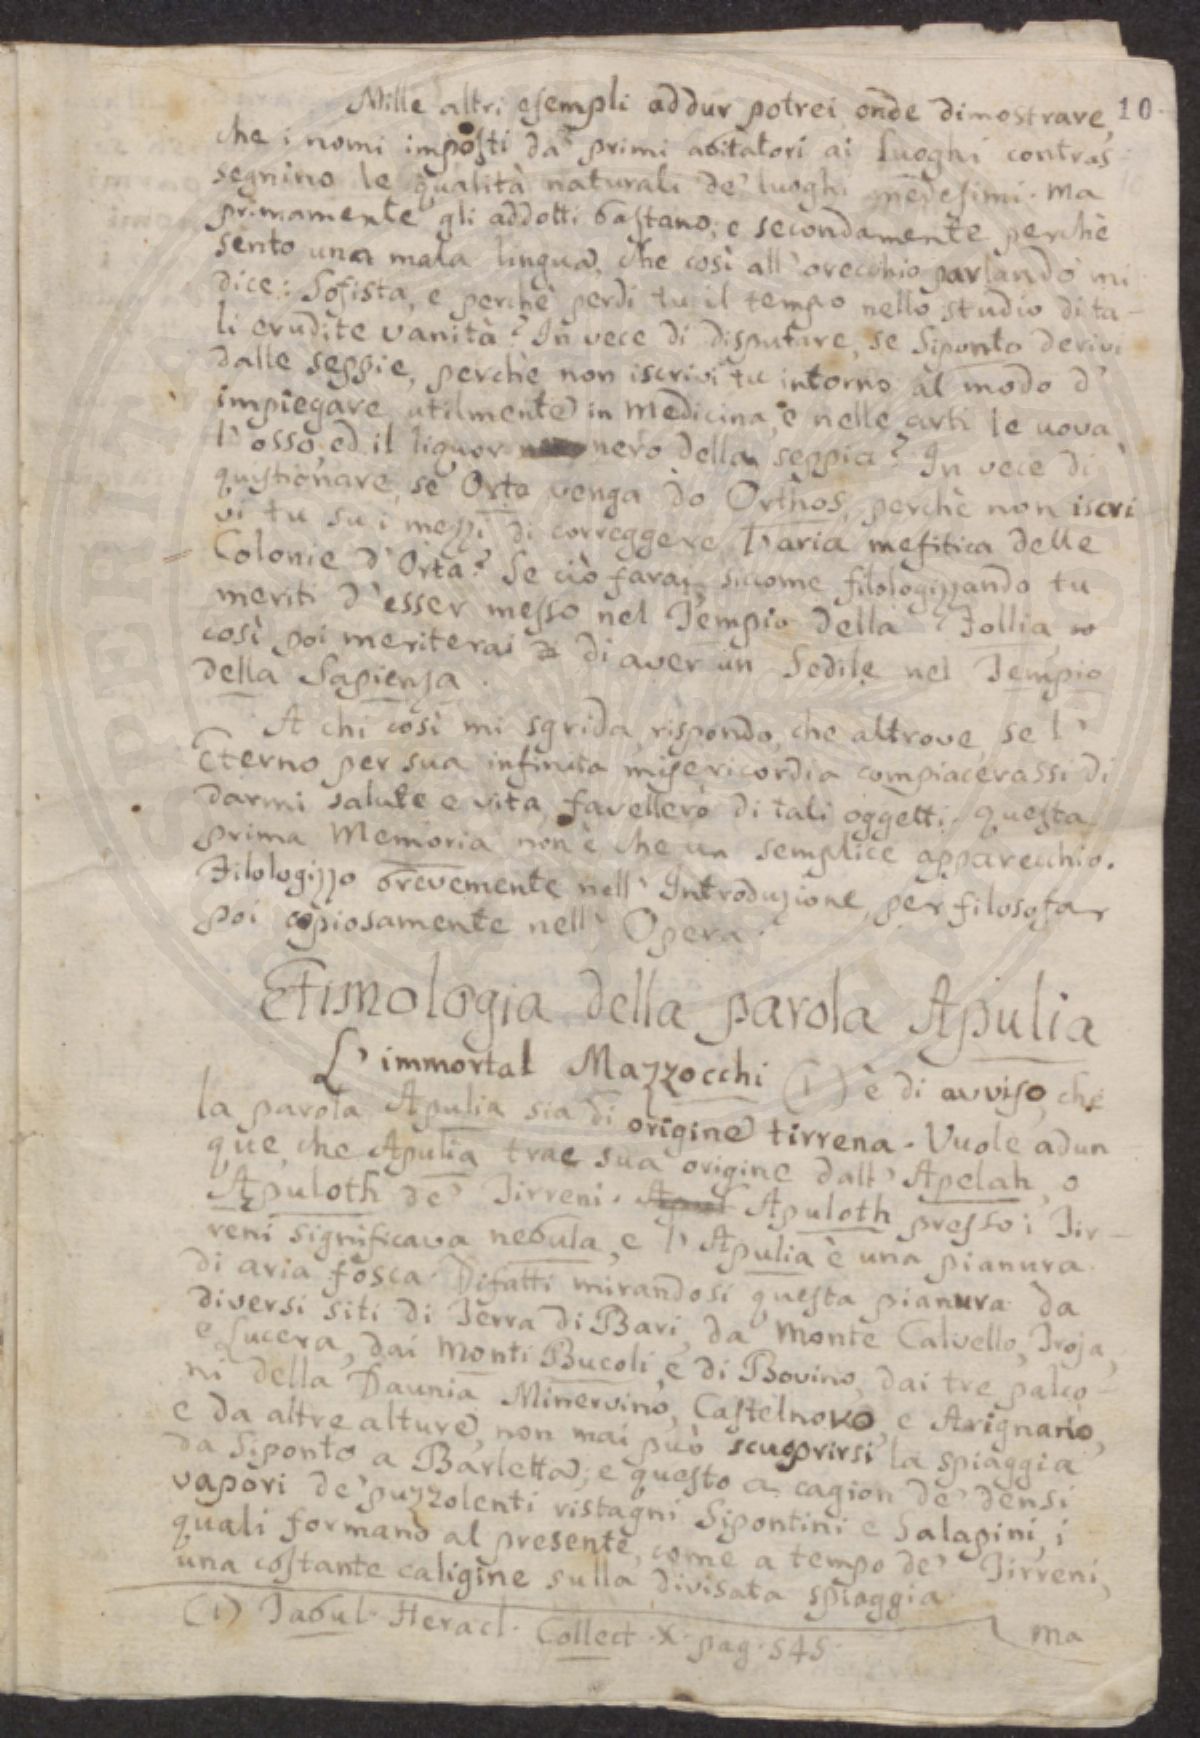 10
Mille altri esempli addur potrei onde dimostrare,
che i nomi imposti da' primi abitatori ai luoghi contras
segnino le qualità naturali de' luoghi medesimi. Ma
primamente gli addotti bastano; e secondamente perchè
sento una mala lingua, che così all'orecchio parlando mi
dice: Sofista, e perchè perdi tu il tempo nello studio di ta-
li erudite vanità? In vece di disputare, se Siponto derivi
dalle seppie, perchè non iscrivi tu intorno al modo d'
impiegare utilmente in Medicina, e nelle arti le uova,
l'osso, ed il liquor nero della seppia? In vece di
quistionare, se Orta venga da Orthos, perchè non iscri
vi tu su i mezzi di correggere l'aria mefitica delle
Colonie d'Orta? Se ciò farai, siccome filologizzando tu
meriti d'esser messo nel Tempio della Follia
così poi meriterai di aver un Sedile nel Tempio
della Sapienza.
A chi così mi sgrida, rispondo, che altrove, se l'
Eterno per sua infinita misericordia compiacerassi di
darmi salute e vita, favellerò di tali oggetti. Questa
prima Memoria non è che un semplice apparecchio.
Filologizzo brevemente nell'Introduzione, per filosofar
poi copiosamente nell'Opera.
Etimologia della parola Apulia
L'immortal Mazzocchi (1) è di avviso, che
la parola Apulia sia di origine tirrena. Vuole adun
que, che Apulia trae sua origine dall'Apelah, o
Apuloth de' Tirreni. Apuloth presso i Tir-
reni significava nebula, e l'Apulia è una pianura
di aria fosca. Difatti mirandosi questa pianura da
diversi siti di Terra di Bari, da Monte Calvello, Troja,
e Lucera, dai Monti Bucoli, e di Bovino, dai tre palco-
ni della Daunia Minervino, Castelnovo, e Arignano,
e da altre alture, non mai può scuoprirsi la spiaggia
da Siponto a Barletta; e questo a cagion de' densi
vapori de' puzzolenti ristagni Sipontini e Salapini, i
quali formano al presente, come a tempo de' Tirreni,
una costante caligine sulla divisata spiaggia.
(1) Tabul. Heracl. Collect. X. pag. 545.
Ma